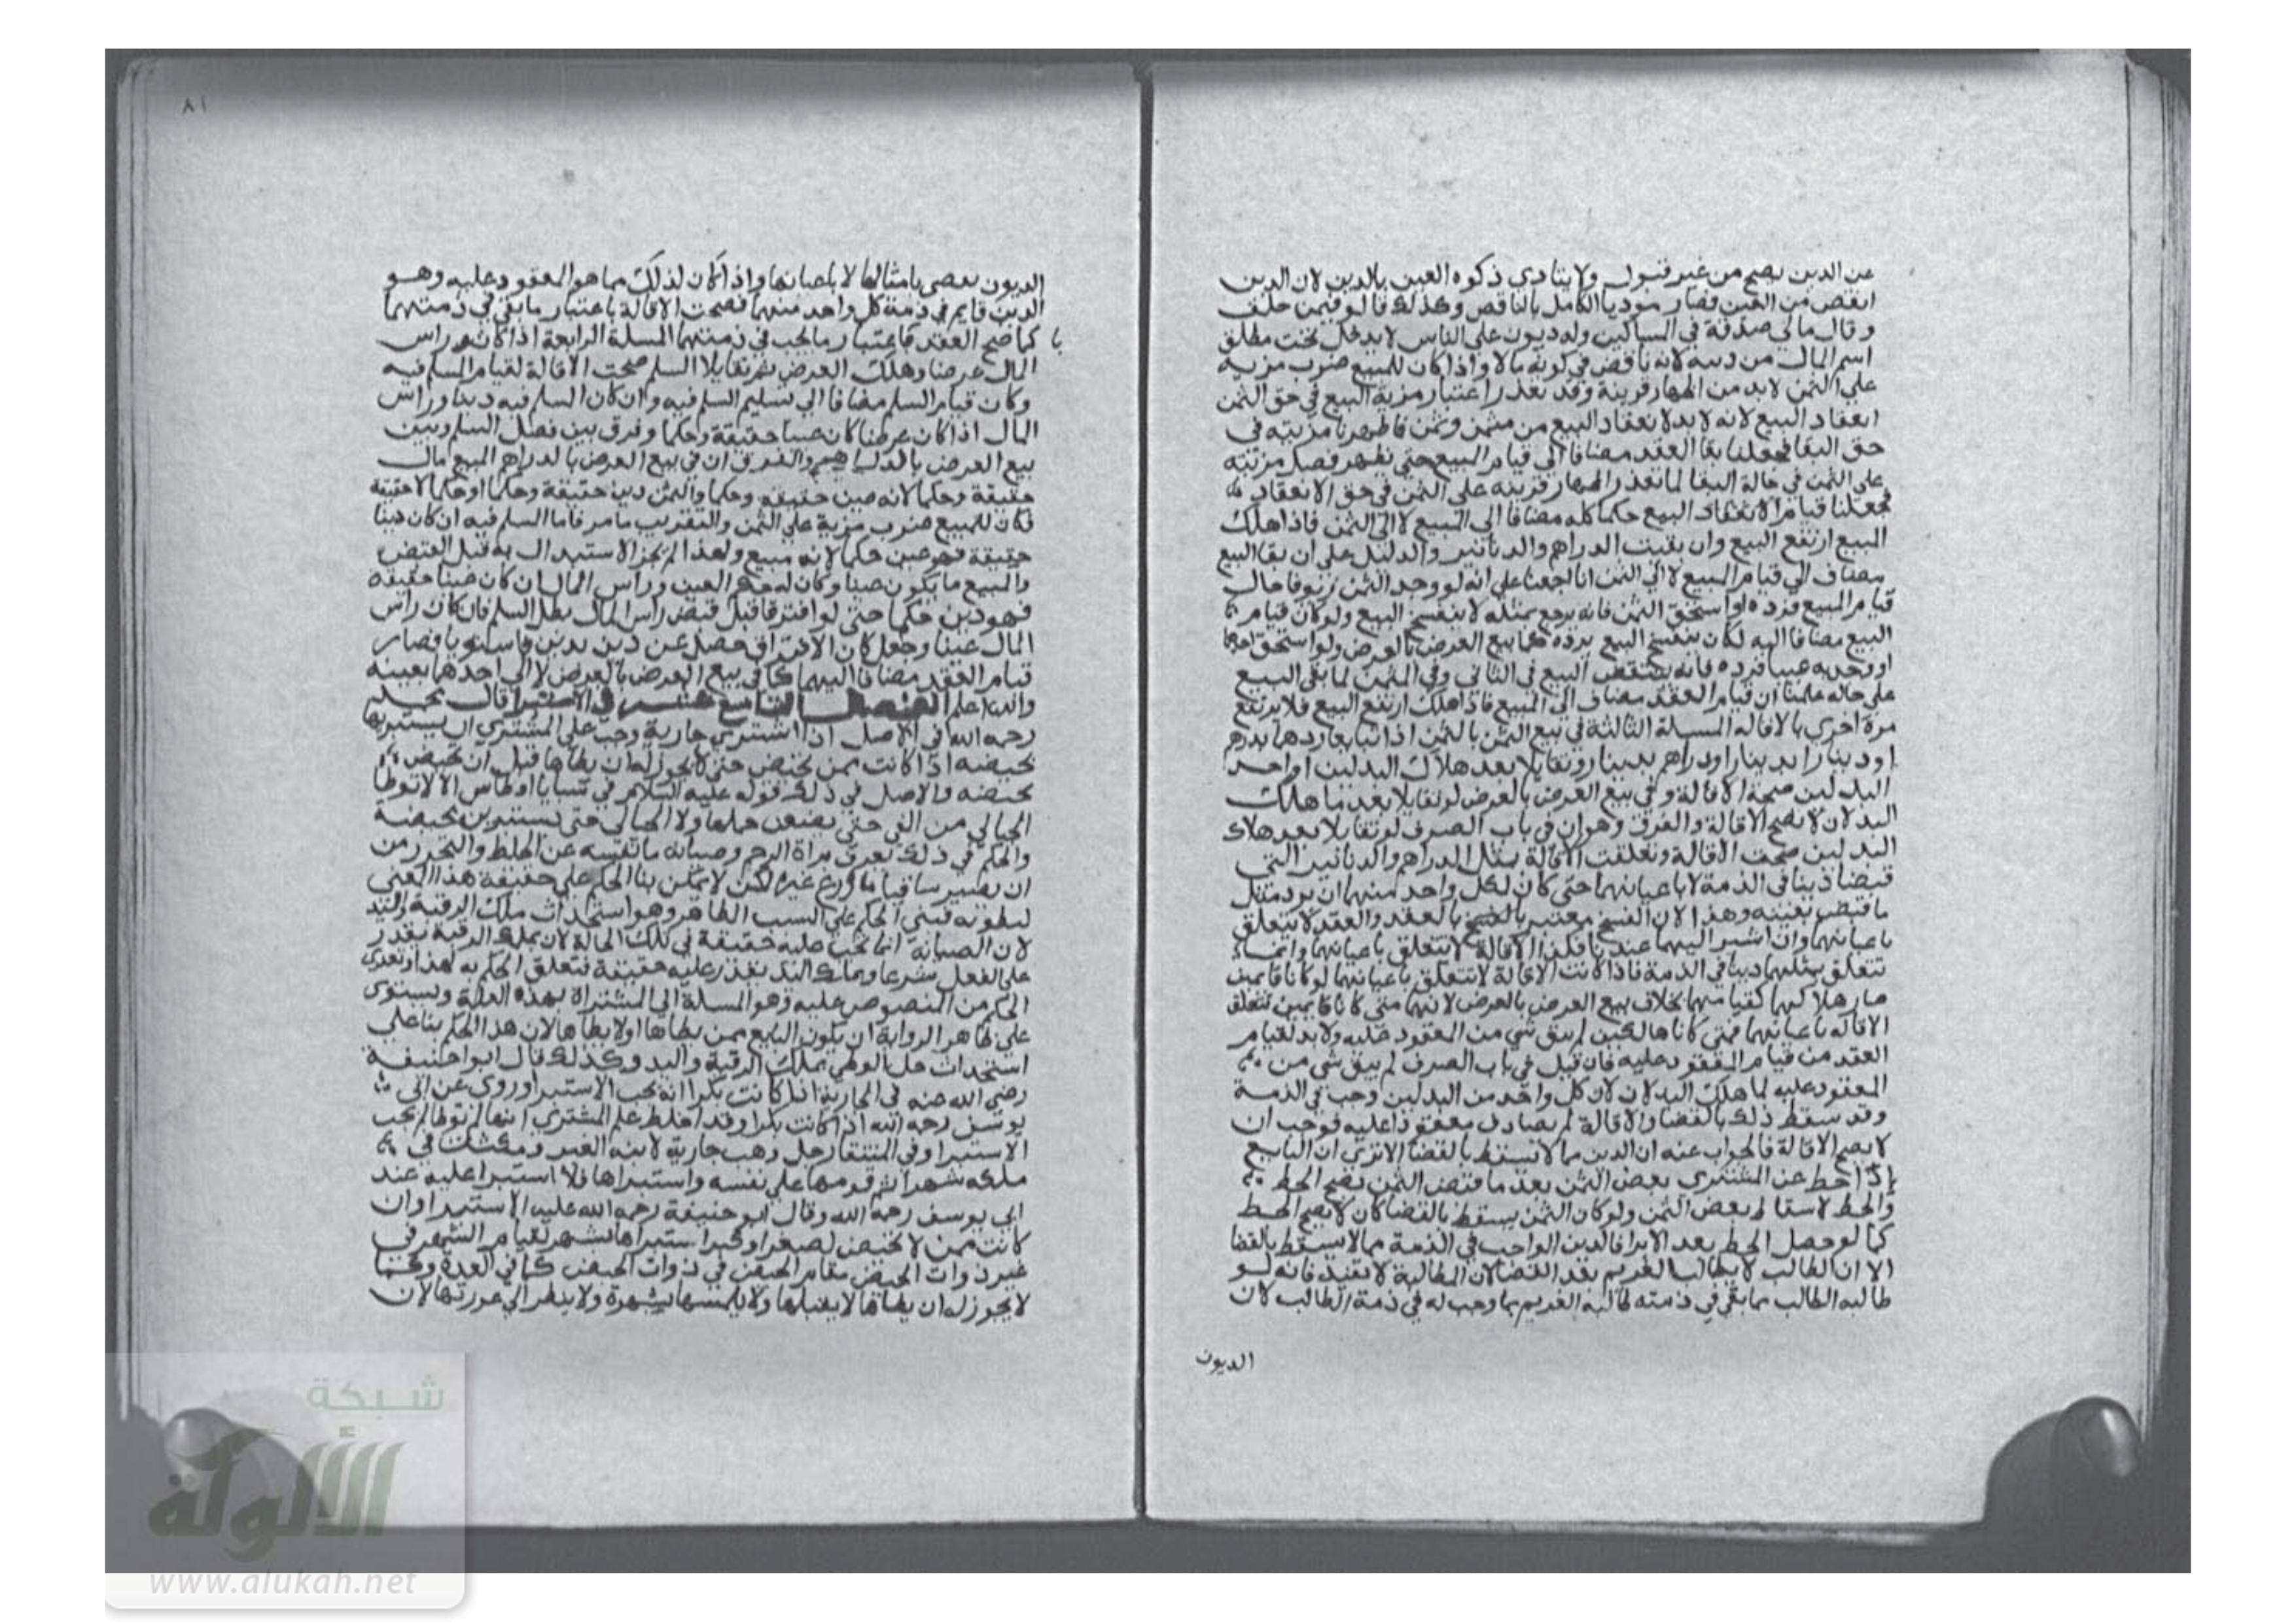 عن الدين يصح من غير قبول ولا يتادي زكوه العين بالدين لان الدين
انقص من العين فصار موديا الكامل بالناقص وكذلك قالوا فيمن حلف
وقال مالي صدقة في المساكين وله ديون على الناس لا يدخل تحت مطلق
اسم المال من دينه لانه ناقص في كونه مالا واذا كان للمبيع ضرب مزية
علي الثمن لا بد من اظهار قرينة وقد تعذر اعتبار مزية المبيع في حق الثمن
انعقاد البيع لانه لا بد لانعقاد البيع من مثمن وثمن فاظهرنا مزيته في
حق البقا فجعلنا بقا العقد مضافا الي قيام المبيع حتى يظهر فصل مزيته
على الثمن في حالة البقا لما تعذر اظهار قرينه على الثمن في حق الانعقاد
فجعلنا قيام الانعقاد البيع حكما كله مضافا الي المبيع لا الى الثمن فاذا هلك
المبيع ارتفع البيع وان بقيت الدراهم والدنانير والدليل على ان بقا البيع
مضاف الي قيام المبيع لا الي الثمن انا اجمعنا على انه لو وجد الثمن زيوفا حال
قيام المبيع فرده او استحق الثمن فانه يرجع بمثله لا ينفسخ البيع ولو كان قيام
البيع مضافا اليه لكان ينفسخ البيع برده كما بيع العرض بالعرض ولو استحق احدهما
او وجد به عيبا فرده فانه ينتقض البيع في الثاني وفي المثمن لما بقي البيع
على حاله علمنا ان قيام العقد مضاف الي المبيع فاذا هلك ارتفع البيع فلا يرتفع
مرة اخري بالاقاله المسيلة الثالثة في بيع الثمن بالثمن اذا تبايعا درهما بدرهم
او دينارا بدينار او دراهم بدينار وتقايلا بعد هلاك البدلين او احد
البدلين صحة الاقالة وفي بيع العرض بالعرض لو تقايلا بعد ما هلك
البدلان لا تصح الاقالة والفرق وهو ان في باب الصرف لو تقايلا بعد هلاك
البدلين صحت الاقالة وتعلقت الاقالة بمثل الدراهم والدنانير التي
قبضا دينا في الذمة لا باعيانهما حتى كان لكل واحد منهما ان يرد مثل
ما قبض بعينه وهذا لان الفسخ معتبر بالفسخ بالعقد والعقد لا يتعلق
باعيانهما وان اشير اليهما عندنا فكذا الاقالة لا تتعلق باعيانهما وانما
تتعلق بمثلهما دينا في الذمة فاذا كانت الاقالة لا تتعلق باعيانهما لو كانا قايمين
صار هلاكهما كقيامهما بخلاف بيع العرض بالعرض لانهما متى كانا قايمين تتعلق
الاقاله باعيانهما فمتى كانا هالكين لم يبق شي من المعقود عليه ولا بد لقيام
العقد من قيام المعقود عليه فان قيل في باب الصرف لم يبق شي من
المعقود عليه لما هلك البدلان لان كل واحد من البدلين وجب في الذمة
وقد سقط ذلك بالقضا والاقالة لم يصادف معقودا عليه فوجب ان
لا يصح الاقالة فالجواب عنه ان الدين مما لا يسقط بالقضا الا تري ان البايع
اذا حط عن المشتري بعض الثمن بعد ما قبض الثمن يصح الحط
والحط لاسقاط بعض الثمن ولو كان الثمن يسقط بالقضا كان لا يصح الحط
كما لو حصل الحط بعد الابرا فالدين الواجب في الذمة مما لا يسقط بالقضا
الا ان الطالب لا يطالب الغريم بعد القضا لان المطالبة لا تفيد فانه لو
طالبه الطالب بما بقي في ذمته طالبه الغريم بما وجب له في ذمة الطالب لان
الديون
٨١
الديون تقضى بامثالها لا باعيانها واذا كان لذلك مما هو المعقود عليه وهو
الدين قايم في ذمة كل واحد منهما فصحت الاقالة باعتبار ما بقي في ذمتهما
كما صح العقد باعتبار ما يجب في ذمتهما المسلة الرابعة اذا كان راس
المال عرضا وهلك العرض ثم تقايلا السلم صحت الاقالة لقيام المسلم فيه
وكان قيام السلم مضافا الي تسليم المسلم فيه وان كان المسلم فيه دينا وراس
المال اذا كان عرضا كان عينا حقيقة وحكما وفرق بين فصل السلم وبين
بيع العرض بالدراهم والفرق ان في بيع العرض بالدراهم المبيع مال
حقيقة وحكما لانه عين حقيقة وحكما والثمن دين حقيقة وحكما او حكما لا حقيقة
فكان للمبيع ضرب مزية على الثمن والتقريب ما مر فاما المسلم فيه ان كان دينا
حقيقة فهو عين حكما لانه مبيع ولهذا لم يجز الاستبدال به قبل القبض
والمبيع ما يكون عينا وكان له حكم العين وراس المال ان كان عينا حقيقة
فهو دين حكما حتى لو افترقا قبل قبض راس المال بطل السلم فان كان راس
المال عينا وجعل كان الافتراق حصل عن دين بدين فاستويا فصار
قيام العقد مضافا اليهما كما في بيع العرض بالعرض لا الي احدهما بعينه
والله اعلم الفصل التاسع عشر في الاستبرا قال محمد
رحمه الله في الاصل اذا اشتري جارية وجب علي المشتري ان يستبريها
بحيضه اذا كانت ممن تحيض حتى لا يجوز له ان يطاها قبل ان تحيض
بحيضه والاصل في ذلك قوله عليه السلام في سبايا اوطاس الا لا توطا
الحبالي من الفي حتى يضعن حملها ولا الحيالى حتى يستبرين بحيضة
والحكم في ذلك تعرف براة الرحم وصيانة ماء نفسه عن الخلط والتحرز من
ان يصير ساقيا ماؤه زرع غيره لكن لا يمكن بنا الحكم علي حقيقة هذا المعني
لبطونه فبني الحكم علي السبب الظاهر وهو استحداث ملك الرقبة واليد
لان الصيانة انما تجب عليه حقيقة في تلك الحالة لان بملك الرقبة يقدر
على الفعل شرعا وبملك اليد يقدر عليه حقيقة فتعلق الحكم به لهذا وتعدى
الحكم من المنصوص عليه وهو المسبية الي المشتراة بهذه العلة ويستوى
على ظاهر الرواية ان يكون البايع ممن يطاها او لا يطاها لان هذا الحكم بنا علي
استحداث حل الوطي بملك الرقبة واليد وكذلك قال ابو حنيفة
رضي الله عنه في الجارية اذا كانت بكرا انه يجب الاستبرا وروي عن ابي
يوسف رحمه الله اذا كانت بكرا وقد احاط علم المشتري انها لم توطا لم يجب
الاستبرا وفي المنتقا رجل وهب جارية لابنه الصغير ومكثت في
ملكه شهرا ثم قومها علي نفسه واستبراها فلا استبرا عليه عند
ابي يوسف رحمه الله وقال ابو حنيفة رحمه الله عليه الاستبرا وان
كانت ممن لا تحيض لصغر او كبر استبراها بشهر لقيام الشهر في
غير ذوات الحيض مقام الحيض في ذوات الحيض كما في العدة وكما
لا يجوز له ان يطاها لا يقبلها ولا يلمسها بشهوة ولا ينظر الي عورتها لان
شبكة
الألوكة
www.alukah.net